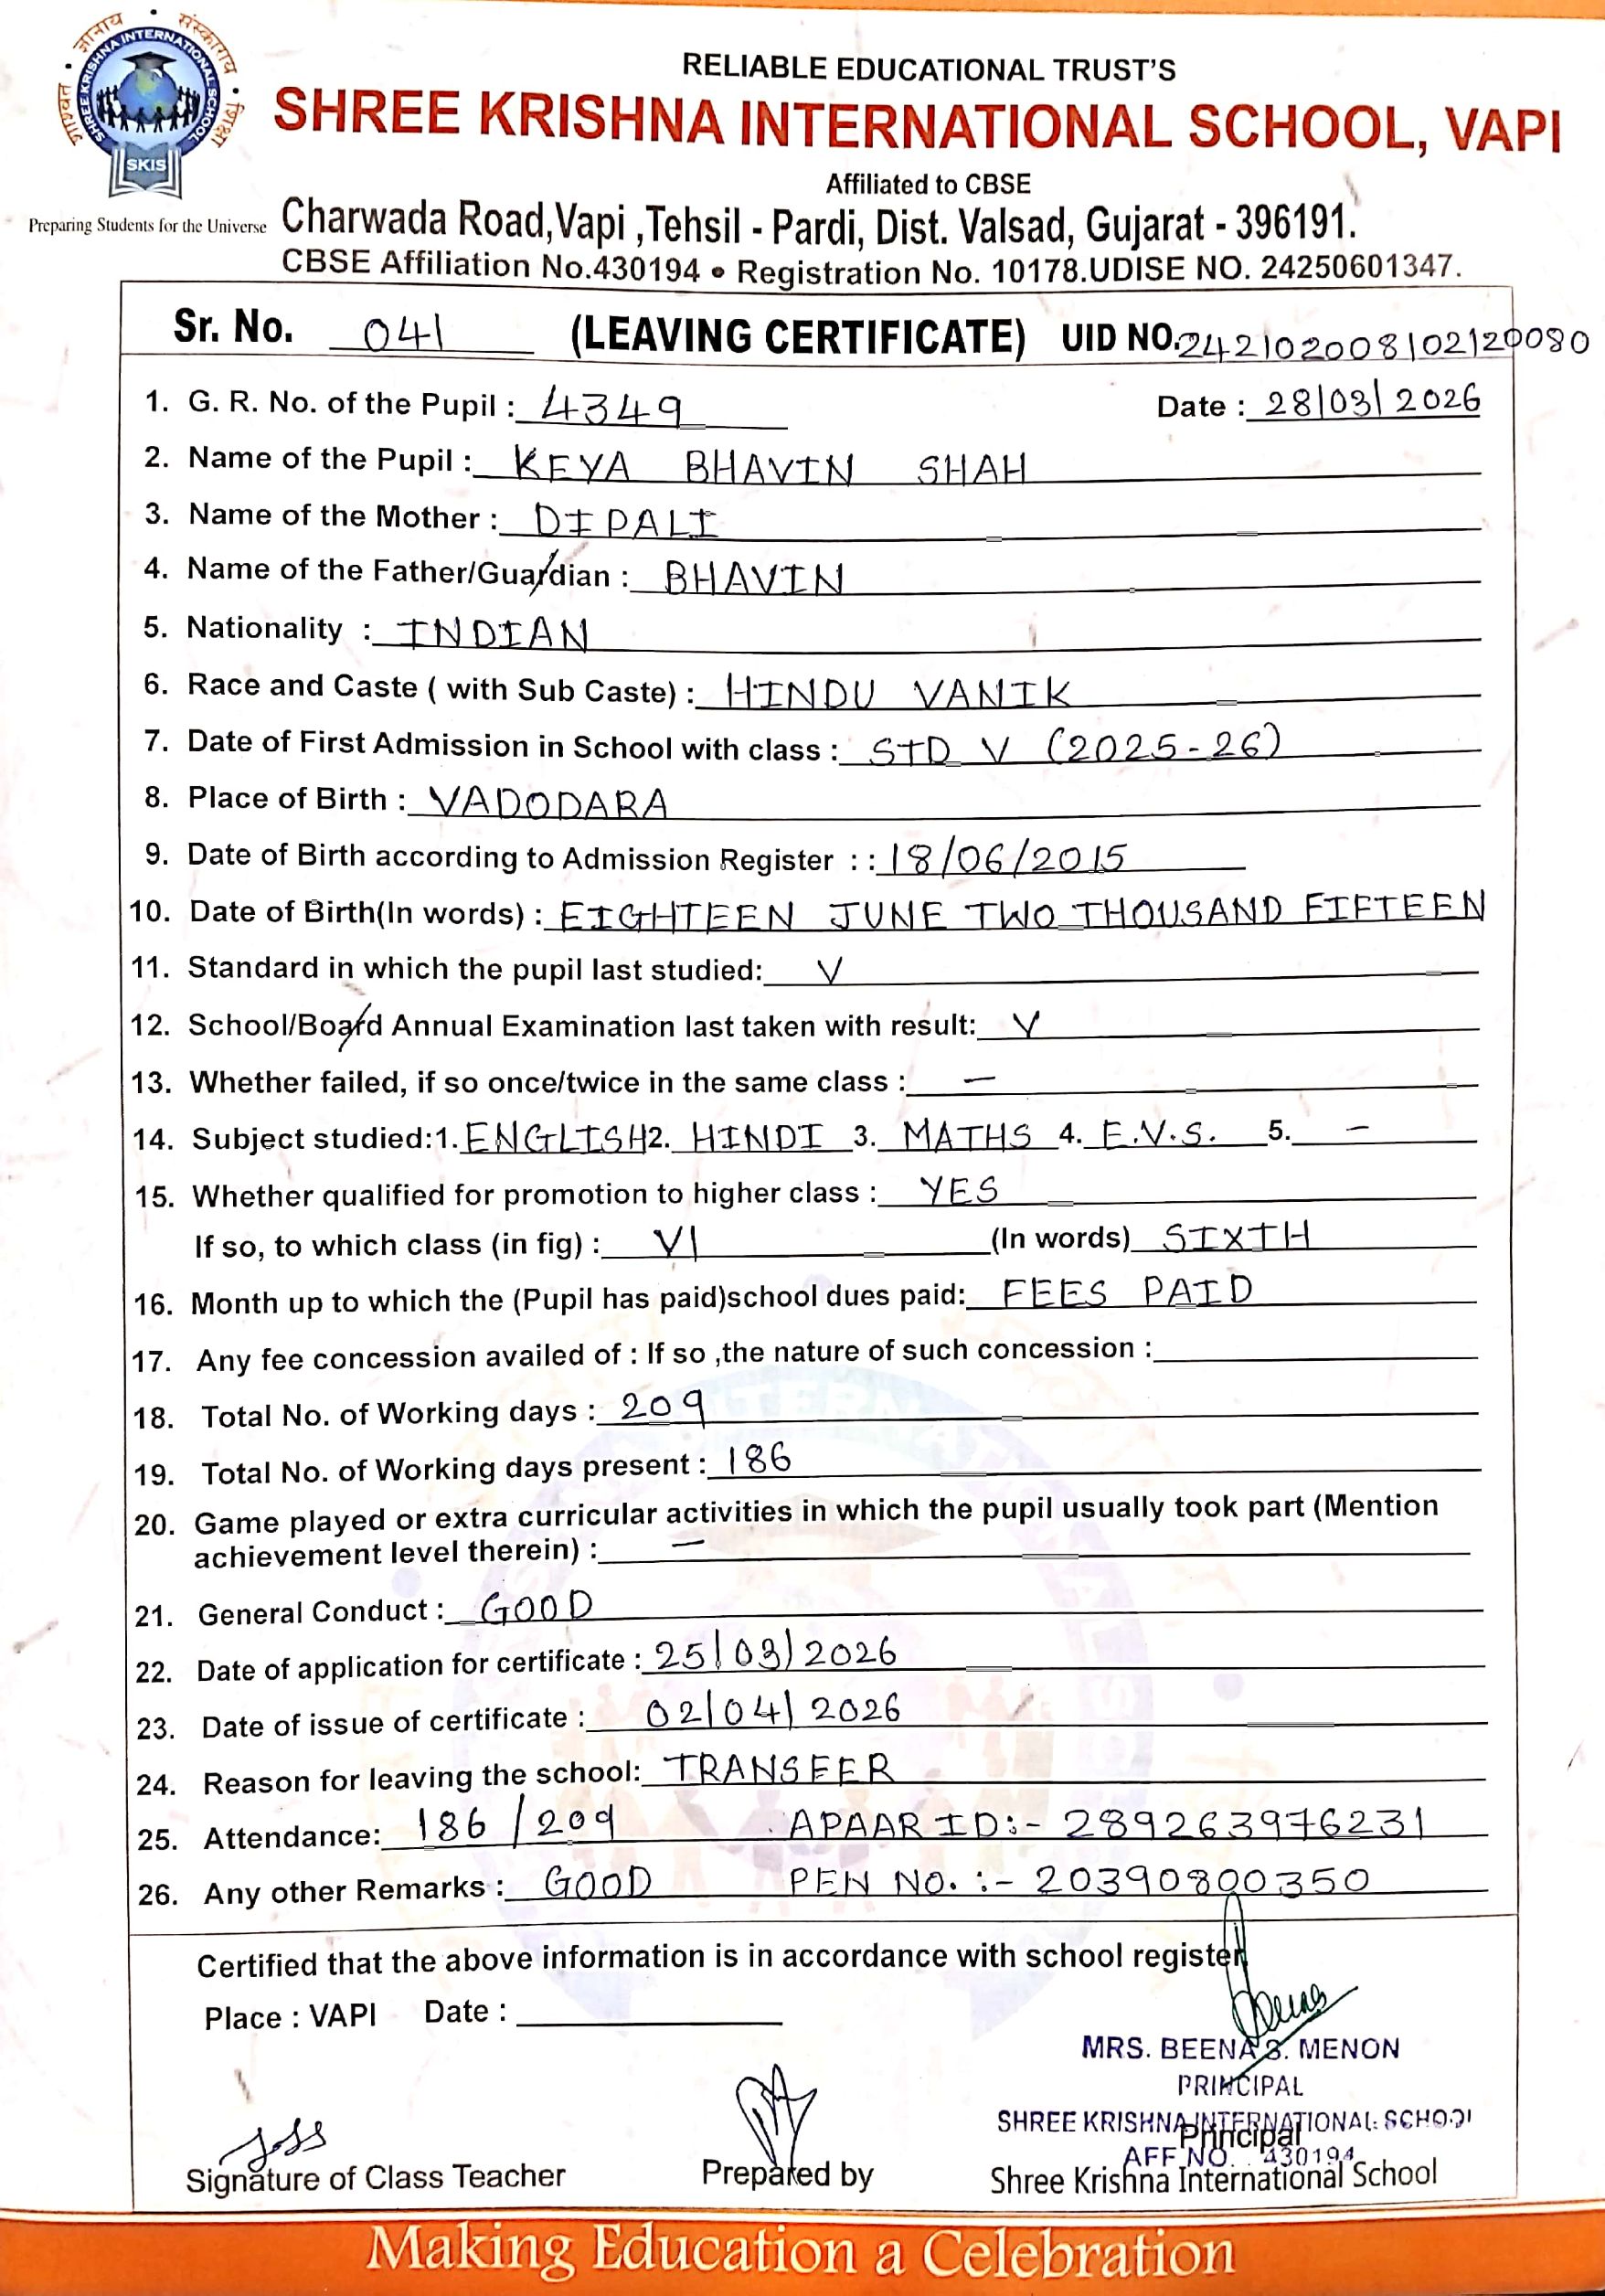 गायन्त • ज्ञानाय • संस्काराय • शिक्षा
SHREE KRISHNA INTERNATIONAL SCHOOL
SKIS
Preparing Students for the Universe
RELIABLE EDUCATIONAL TRUST'S
SHREE KRISHNA INTERNATIONAL SCHOOL, VAPI
Affiliated to CBSE
Charwada Road,Vapi ,Tehsil - Pardi, Dist. Valsad, Gujarat - 396191.
CBSE Affiliation No.430194 • Registration No. 10178.UDISE NO. 24250601347.
Sr. No. 041 (LEAVING CERTIFICATE) UID NO.242102008102120080
1. G. R. No. of the Pupil : 4349 Date : 28/03/2026
2. Name of the Pupil : KEYA BHAVIN SHAH
3. Name of the Mother : DIPALI
4. Name of the Father/Guardian : BHAVIN
5. Nationality : INDIAN
6. Race and Caste ( with Sub Caste) : HINDU VANIK
7. Date of First Admission in School with class : STD V (2025-26)
8. Place of Birth : VADODARA
9. Date of Birth according to Admission Register : : 18/06/2015
10. Date of Birth(In words) : EIGHTEEN JUNE TWO THOUSAND FIFTEEN
11. Standard in which the pupil last studied: V
12. School/Board Annual Examination last taken with result: V
13. Whether failed, if so once/twice in the same class : –
14. Subject studied:1. ENGLISH 2. HINDI 3. MATHS 4. E.V.S. 5. –
15. Whether qualified for promotion to higher class : YES
If so, to which class (in fig) : VI (In words) SIXTH
16. Month up to which the (Pupil has paid)school dues paid: FEES PAID
17. Any fee concession availed of : If so ,the nature of such concession :
18. Total No. of Working days : 209
19. Total No. of Working days present : 186
20. Game played or extra curricular activities in which the pupil usually took part (Mention
achievement level therein) : –
21. General Conduct : GOOD
22. Date of application for certificate : 25/03/2026
23. Date of issue of certificate : 02/04/2026
24. Reason for leaving the school: TRANSFER
25. Attendance: 186/209 APAAR ID:- 289263976231
26. Any other Remarks : GOOD PEN NO. :- 20390800350
Certified that the above information is in accordance with school register
Place : VAPI Date :
MRS. BEENA S. MENON
PRINCIPAL
SHREE KRISHNA INTERNATIONAL SCHOOL
Principal
AFF NO. 430194
Signature of Class Teacher Prepared by Shree Krishna International School
Making Education a Celebration